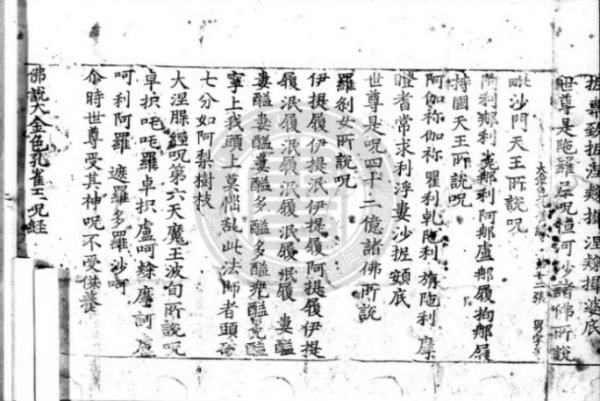 世尊是陀羅尼呪恒河沙諸佛所說
毗沙門天王所說呪
阿利那利㝹那利阿那盧那履拘那履
持國天王所說呪
阿伽祢伽祢瞿利乹陁利旃陁利摩
蹬耆常求利浮婁沙捉頞底
世尊是呪四十二億諸佛所說
羅刹女所說呪
伊提履伊提泯伊提履阿提履伊提
履泯履泯履泯履泯履婁醯
婁醯婁醯婁醯多醯多醯兠醯㝹醯
寧上我頭上莫惱乱此法師者頭破
七分如阿梨樹枝
大涅槃經呪第六天魔王波旬所說呪
卓枳吒吒羅卓枳盧呵隸摩訶盧
呵利阿羅遮羅多羅沙呵
尒時世尊受其神呪不受供養
佛說大金色孔雀王呪經